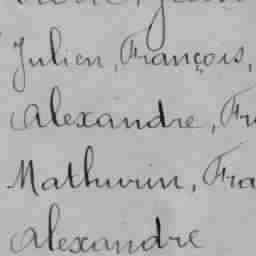 Julien, François,
Alexandre, Fr
Mathurin, Fra
Alexandre